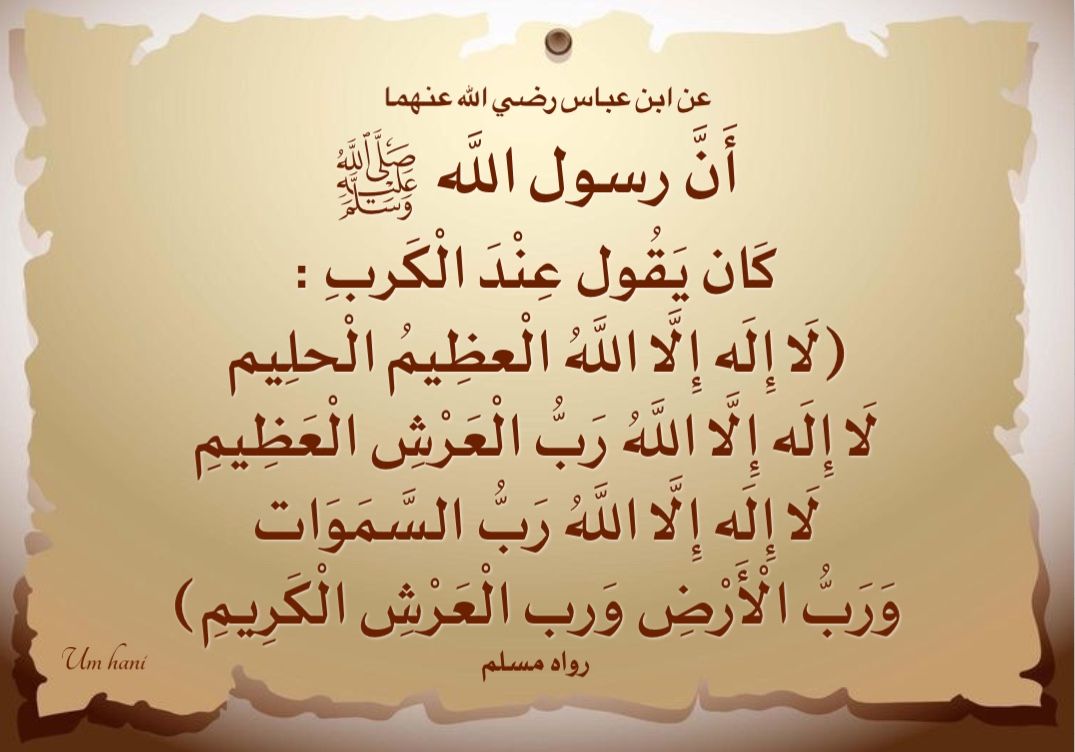 عن ابن عباس رضي الله عنهما
أَنَّ رسول اللَّه ﷺ
كَان يَقُول عِنْدَ الْكَربِ :
(لَا إِلَه إِلَّا اللَّهُ الْعظِيمُ الْحلِيم
لَا إِلَه إِلَّا اللَّهُ رَبُّ الْعَرْشِ الْعَظِيمِ
لَا إِلَه إِلَّا اللَّهُ رَبُّ السَّمَوَات
وَرَبُّ الْأَرْضِ وَرب الْعَرْشِ الْكَرِيمِ)
رواه مسلم
Um hani